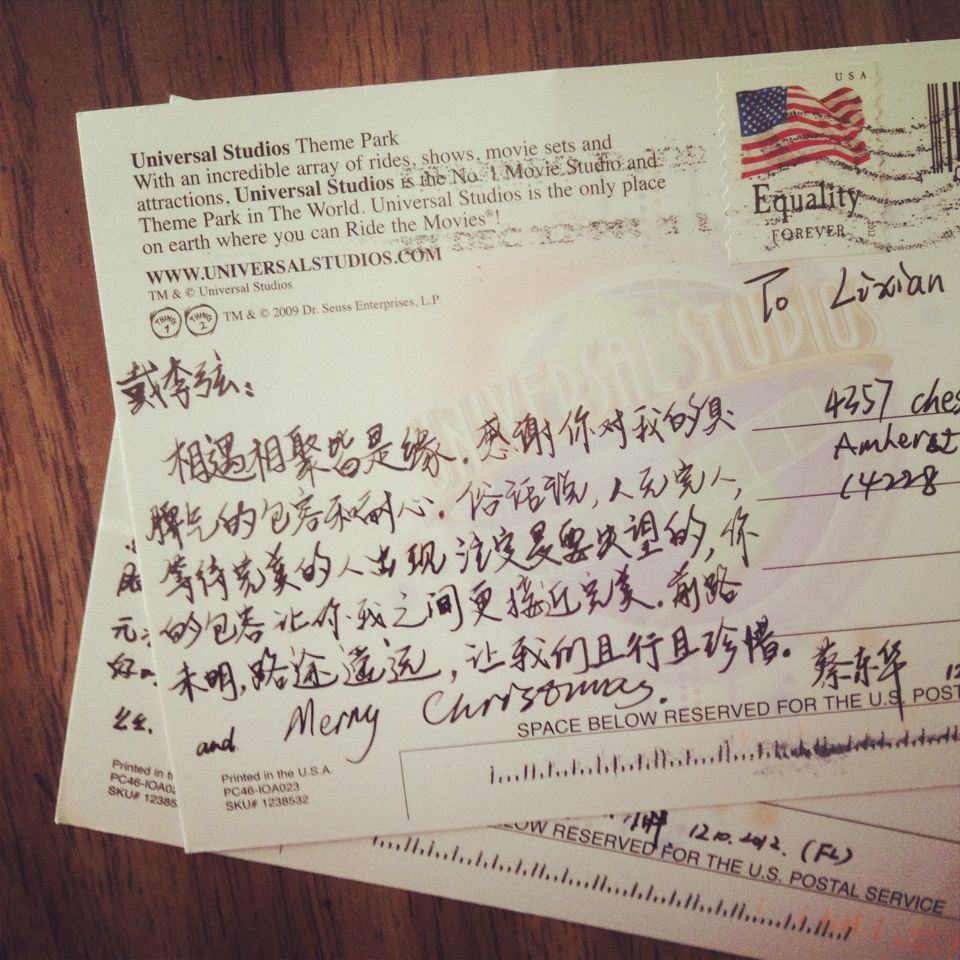 USA
Equality
FOREVER
Universal Studios Theme Park
With an incredible array of rides, shows, movie sets and
attractions, Universal Studios is the No. 1 Movie Studio and
Theme Park in The World. Universal Studios is the only place
on earth where you can Ride the Movies®!
WWW.UNIVERSALSTUDIOS.COM
TM & © Universal Studios
THING 1 THING 2 TM & © 2009 Dr. Seuss Enterprises, L.P.
UNIVERSAL STUDIOS
To Lixian
4357 ches
Amherst
14228
戴李弦:
相遇相聚皆是缘。感谢你对我的臭
脾气的包容和耐心。俗话说,人无完人,
等待完美的人出现注定是要失望的,你
的包容让你我之间更接近完美。前路
未明,路途遥远,让我们且行且珍惜。
and Merry Christmas.
蔡东华
12
SPACE BELOW RESERVED FOR THE U.S. POST
Printed in the U.S.A.
PC46-IOA023
SKU# 1238532
元
好
Printed in t
PC46-IOA02
SKU# 12385
12.10.2012. (FL)
LOW RESERVED FOR THE U.S. POSTAL SERVICE